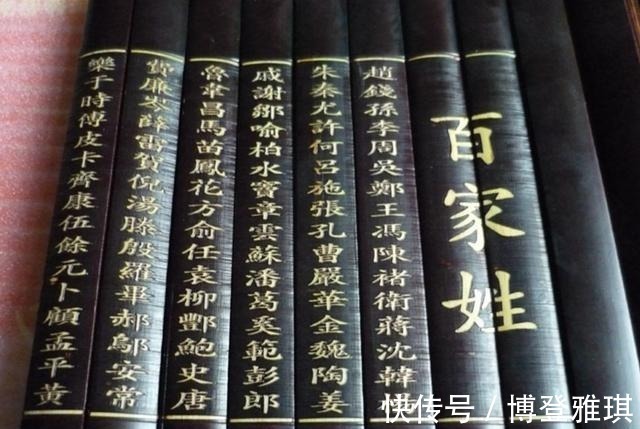 百家姓
趙錢孫李周吳鄭王馮陳褚衛蔣沈韓楊
朱秦尤許何呂施張孔曹嚴華金魏陶姜
戚謝鄒喻柏水竇章雲蘇潘葛奚範彭郎
魯韋昌馬苗鳳花方俞任袁柳酆鮑史唐
費廉岑薛雷賀倪湯滕殷羅畢郝鄔安常
樂于時傅皮卡齊康伍餘元卜顧孟平黃
快传号 / 博登雅琪